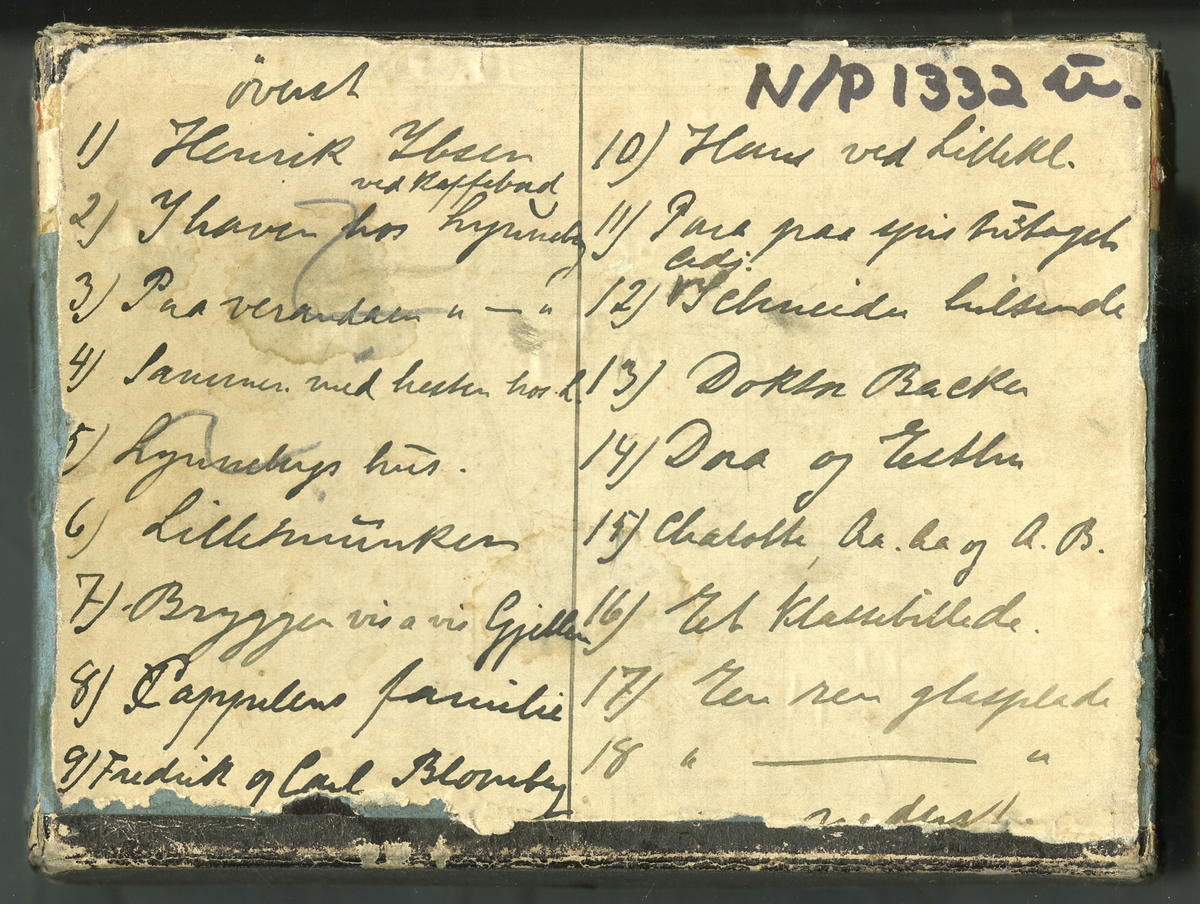 øverst
1) Henrik Ibsen
ved Kaffebord
2) I haven hos Lynneby
3) Paa verandaen " — "
4) Sammen med hesten hos L.
5) Lynnebygs hus.
6) Lillemunken
7) Bryggen vis a vis Gjellen
8) Cappelens familie
9) Fredrik og Carl Blomberg
N/P 1332 u.
10) Hans ved Lillekl.
11) Para paa
12) Schneider hilsende
13) Doktor Backer
14) Dora og Esther
15) Chalotte, Aa. Aa og A. B.
16) Et Klassebillede.
17) En ren glasplade
18 " — "
nederst.